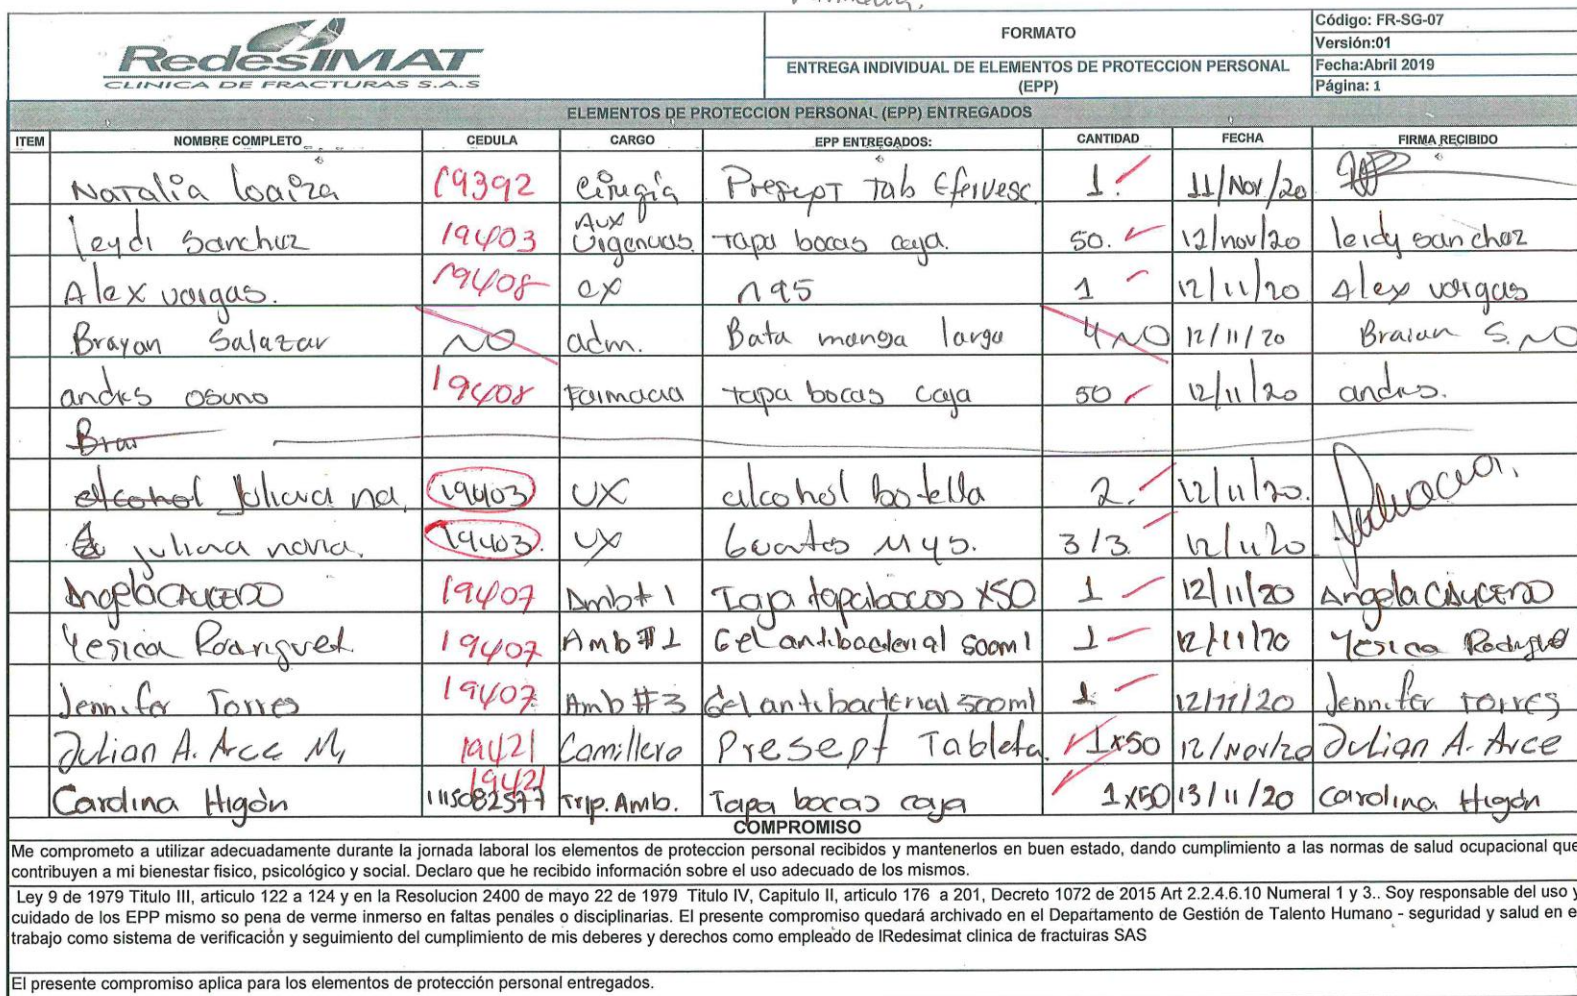 RedesIMAT
CLINICA DE FRACTURAS S.A.S
FORMATO
ENTREGA INDIVIDUAL DE ELEMENTOS DE PROTECCION PERSONAL
(EPP)
Código: FR-SG-07
Versión:01
Fecha:Abril 2019
Página: 1
ELEMENTOS DE PROTECCION PERSONAL (EPP) ENTREGADOS
ITEM NOMBRE COMPLETO CEDULA CARGO EPP ENTREGADOS: CANTIDAD FECHA FIRMA RECIBIDO
Natalia loaiza 19392 Cirugía Presept Tab Efervesc 1. 11/Nov/20
leydi Sanchez 19403 Aux Urgencias. Tapa bocas caja. 50. 12/nov/20 leidy sanchez
Alex vargas. 19408 cx n95 1 12/11/20 Alex vargas
Brayan Salazar NO adm. Bata manga larga 4 NO 12/11/20 Braian S. NO
andres osuno 19408 Farmacia tapa bocas caja 50 12/11/20 andres.
Bra
alcohol Juliana na. 19403 UX alcohol botella 2. 12/11/20.
juliana noria. 19403. UX Guantes M y S. 3/3 12/11/20
Angela CAUCEDO 19407 Amb#1 Caja tapabocas X50 1 12/11/20 Angela CAUCEDO
Yesica Rodriguez 19407 Amb #1 Gel antibacterial 500ml 1 12/11/20 Yesica Rodrigue
Jennifer Torres 19407 Amb #3 Gel antibacterial 500ml 1 12/11/20 Jennifer Torres
Julian A. Arce M, 19421 Camillero Presept Tableta. 1x50 12/Nov/20 Julian A. Arce
19421
Carolina Higón 1115082577 Trip. Amb. Tapa bocas caja 1x50 13/11/20 Carolina Higón
COMPROMISO
Me comprometo a utilizar adecuadamente durante la jornada laboral los elementos de proteccion personal recibidos y mantenerlos en buen estado, dando cumplimiento a las normas de salud ocupacional que
contribuyen a mi bienestar fisico, psicológico y social. Declaro que he recibido información sobre el uso adecuado de los mismos.
Ley 9 de 1979 Titulo III, articulo 122 a 124 y en la Resolucion 2400 de mayo 22 de 1979 Titulo IV, Capitulo II, articulo 176 a 201, Decreto 1072 de 2015 Art 2.2.4.6.10 Numeral 1 y 3.. Soy responsable del uso y
cuidado de los EPP mismo so pena de verme inmerso en faltas penales o disciplinarias. El presente compromiso quedará archivado en el Departamento de Gestión de Talento Humano - seguridad y salud en e
trabajo como sistema de verificación y seguimiento del cumplimiento de mis deberes y derechos como empleado de IRedesimat clinica de fractuiras SAS
El presente compromiso aplica para los elementos de protección personal entregados.